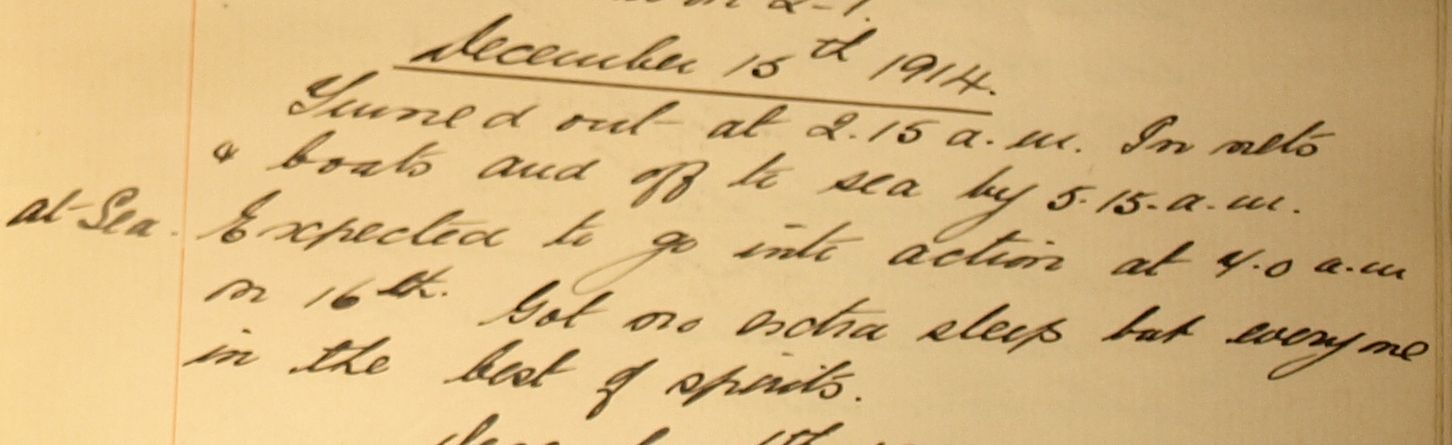 December 15th 1914.
Turned out at 2.15 a.m. In nets
& boats and off to sea by 5.15.a.m.
at Sea. Expected to go into action at 4.0 a.m
on 16th. Got no extra sleep but everyone
in the best of spirits.